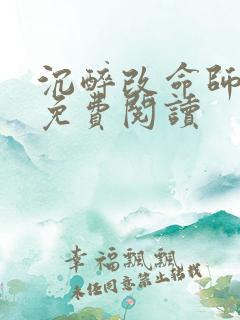 沉醉改命師
免費閱讀
幸福飄飄
未经同意禁止转载